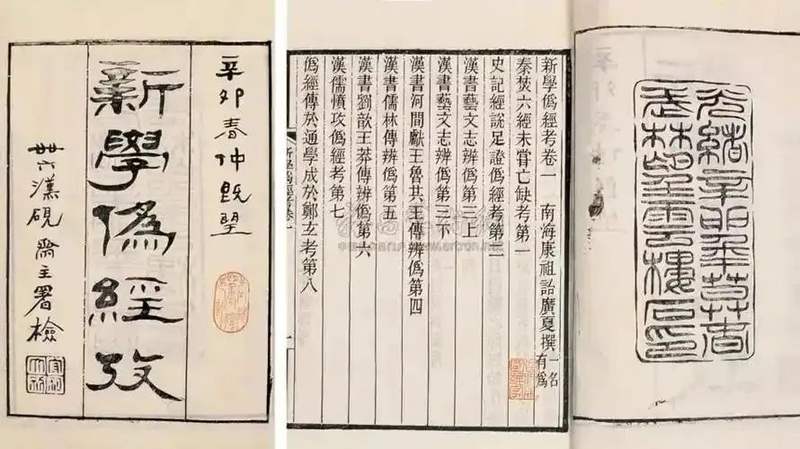 辛卯春仲既望
新學僞經攷
卅六漢硯齋主署檢
新學僞經考卷一 南海康祖詒廣夏撰 一名有為
秦焚六經未嘗亡缺考第一
史記經說足證僞經考第二
漢書藝文志辨僞第三上
漢書藝文志辨僞第三下
漢書河間獻王魯共王傳辨僞第四
漢書儒林傳辨僞第五
漢書劉歆王莽傳辨僞第六
漢儒憤攻僞經考第七
僞經傳於通學成於鄭玄考第八
光緒辛卯
武林望雲樓石印